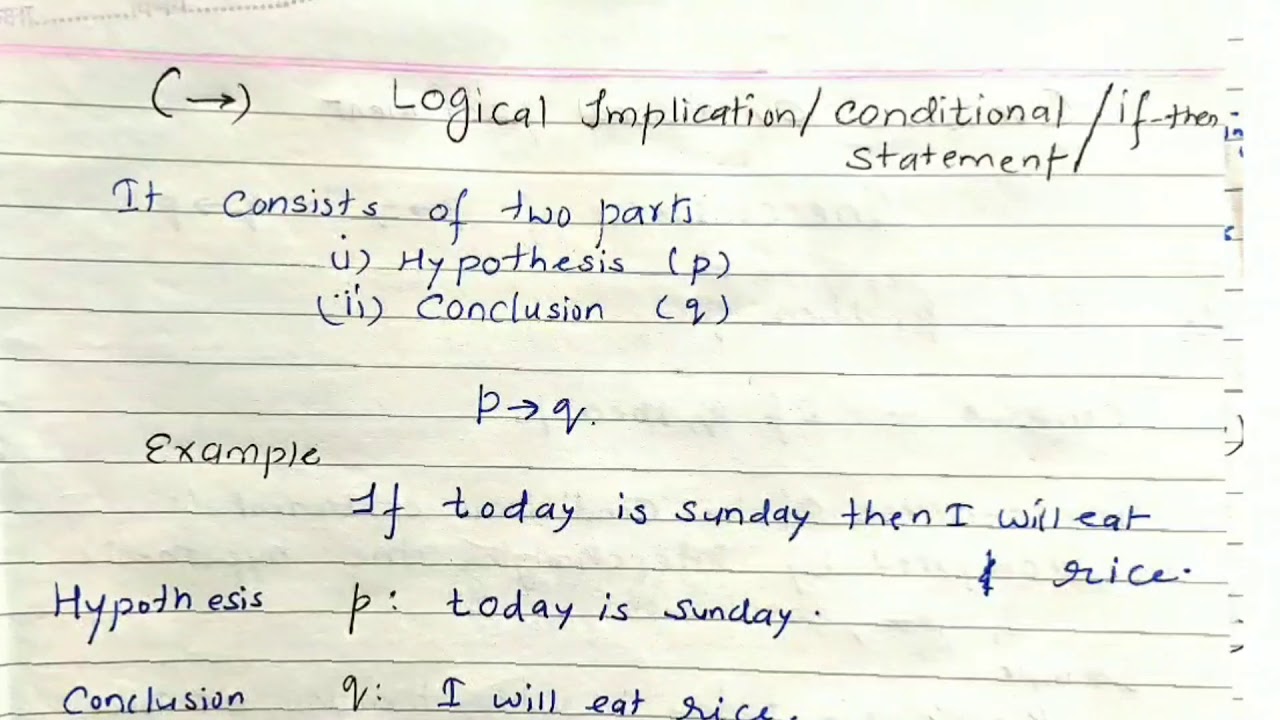 (→) Logical Implication/conditional/if-then
statement/
It consists of two parts
i) Hypothesis (p)
(ii) Conclusion (q)
p→q.
Example
If today is sunday then I will eat
rice.
Hypothesis p: today is sunday.
Conclusion q: I will eat rice.